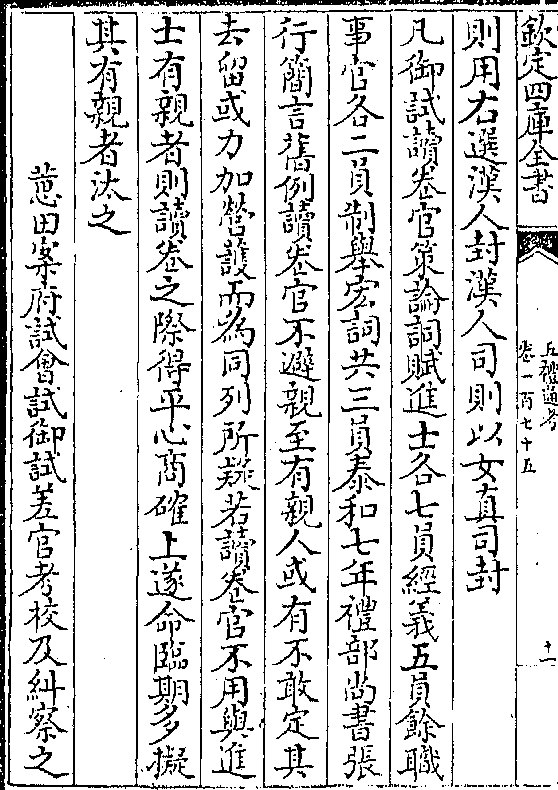 欽定四庫全書
五禮通考
卷一百七十五
十一
則用右選漢人封漢人司則以女真司封
凡御試讀卷官策論詞賦進士各七員經義五員餘職
事官各二員制舉宏詞共三員泰和七年禮部尚書張
行簡言舊例讀卷官不避親至有親人或有不敢定其
去留或力加營護而為同列所疑若讀卷官不用與進
士有親者則讀卷之際得平心商確上遂命臨期多擬
其有親者汰之
蕙田案府試會試御試差官考校及糾察之